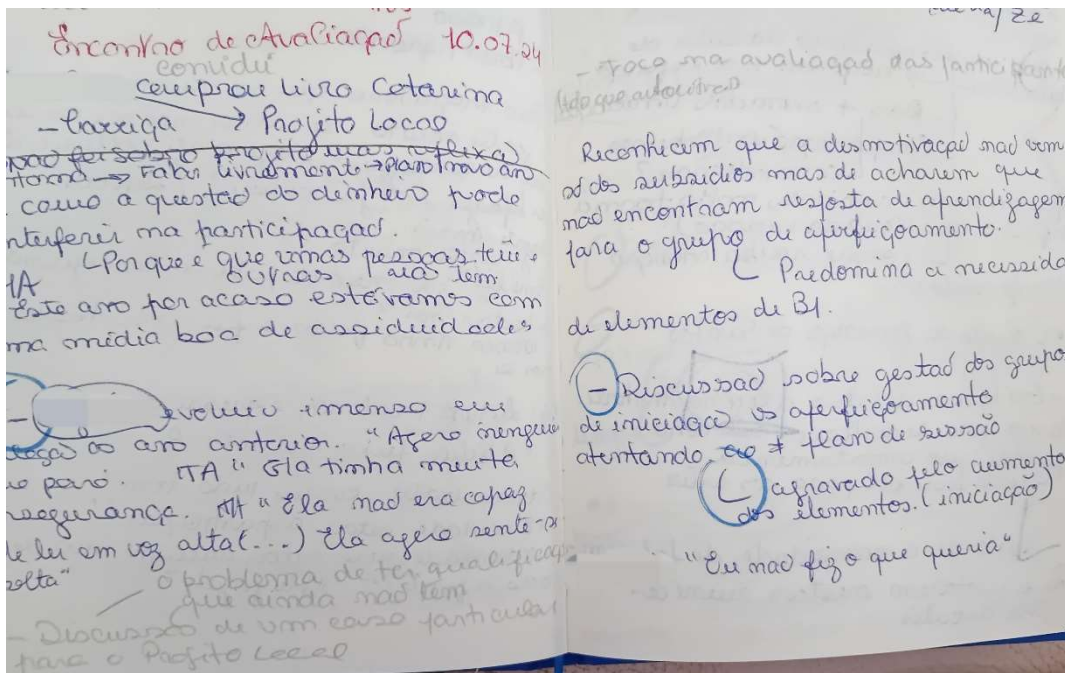 Encontro de Avaliação 10.07.24
convidei
comprou livro Catarina
- Carriga → Projito Local
não foi sobre projito mas reflexão
→ Falar livremente → Plano Novo ano
como a questão do dinheiro pode
nterferir na participação.
Porque é que umas pessoas têm e
outras não têm
TA
Este ano por acaso estávamos com
ma média boa de assiduidades
- evoluiu imenso em
ao ano anterior. "Agora ninguém
pára. TA "Ela tinha muita
segurança. TA "Ela não era capaz
de ler em voz alta (...) Ela agora sente-se
solta"
o problema de ter qualificação
que ainda não têm
- Discussão de um caso particular
para o Projito Local
/ Zé
- Foco na avaliação das participante
do que autocrítica
Reconhecem que a desmotivação não vem
só dos subsídios mas de acharem que
não encontram resposta de aprendizagem
para o grupo de aperfeiçoamento.
Predomina a necessida
de elementos de B1.
- Discussão sobre gestão dos grupo
de iniciação vs aperfeiçoamento
atentando ao ≠ plano de sessão
agravado pelo aumento
dos elementos. (iniciação)
"Eu não fiz o que queria"